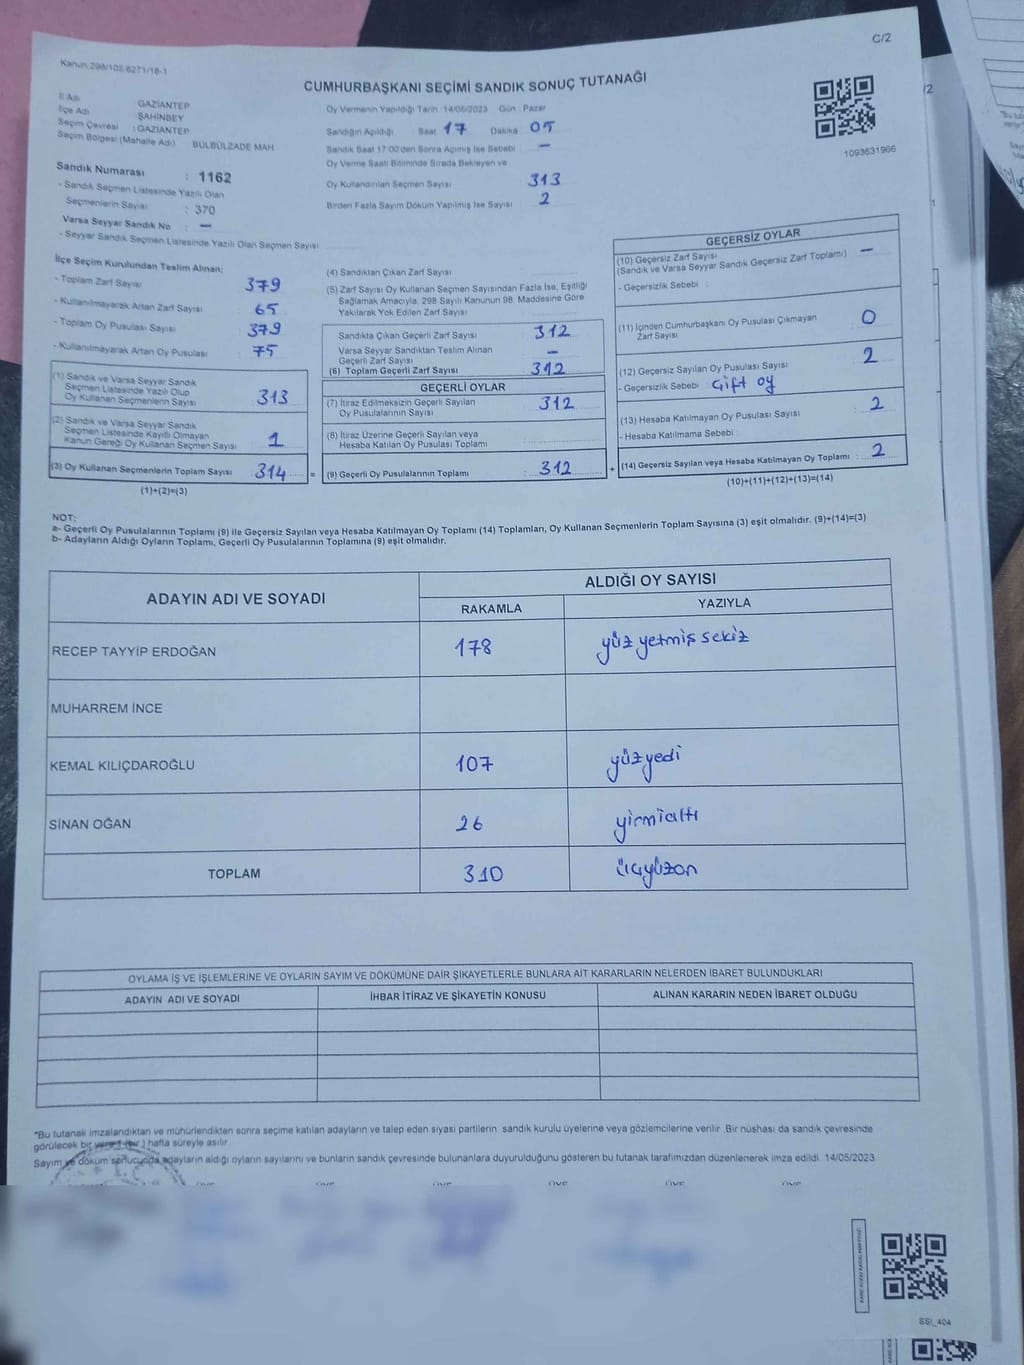 C/2
Kanun 298/105,6271/18-1
CUMHURBAŞKANI SEÇİMİ SANDIK SONUÇ TUTANAĞI
İl Adı GAZİANTEP
İlçe Adı ŞAHİNBEY
Seçim Çevresi : GAZİANTEP
Seçim Bölgesi (Mahalle Adı) BÜLBÜLZADE MAH.
Oy Vermenin Yapıldığı Tarih 14/05/2023 Gün Pazar
Sandığın Açıldığı Saat 17 Dakika 05
Sandık Saat 17:00'den Sonra Açılmış İse Sebebi : —
Oy Verme Saati Bitiminde Sırada Bekleyen ve
Oy Kullandırılan Seçmen Sayısı 313
Birden Fazla Sayım Döküm Yapılmış İse Sayısı : 2
1093631966
Sandık Numarası : 1162
- Sandık Seçmen Listesinde Yazılı Olan
Seçmenlerin Sayısı : 370
Varsa Seyyar Sandık No : —
- Seyyar Sandık Seçmen Listesinde Yazılı Olan Seçmen Sayısı
İlçe Seçim Kurulundan Teslim Alınan;
- Toplam Zarf Sayısı 379
- Kullanılmayarak Artan Zarf Sayısı 65
- Toplam Oy Pusulası Sayısı 379
- Kullanılmayarak Artan Oy Pusulası : 75
(1) Sandık ve Varsa Seyyar Sandık
Seçmen Listesinde Yazılı Olup
Oy Kullanan Seçmenlerin Sayısı 313
(2) Sandık ve Varsa Seyyar Sandık
Seçmen Listesinde Kayıtlı Olmayan
Kanun Gereği Oy Kullanan Seçmen Sayısı 1
(3) Oy Kullanan Seçmenlerin Toplam Sayısı 314 =
(1)+(2)=(3)
(4) Sandıktan Çıkan Zarf Sayısı
(5) Zarf Sayısı Oy Kullanan Seçmen Sayısından Fazla İse, Eşitliği
Sağlamak Amacıyla, 298 Sayılı Kanunun 98. Maddesine Göre
Yakılarak Yok Edilen Zarf Sayısı
Sandıkta Çıkan Geçerli Zarf Sayısı 312
Varsa Seyyar Sandıktan Teslim Alınan
Geçerli Zarf Sayısı —
(6) Toplam Geçerli Zarf Sayısı 312
GEÇERLİ OYLAR
(7) İtiraz Edilmeksizin Geçerli Sayılan
Oy Pusulalarının Sayısı 312
(8) İtiraz Üzerine Geçerli Sayılan veya
Hesaba Katılan Oy Pusulası Toplamı
(9) Geçerli Oy Pusulalarının Toplamı : 312 +
GEÇERSİZ OYLAR
(10) Geçersiz Zarf Sayısı
(Sandık ve Varsa Seyyar Sandık Geçersiz Zarf Toplamı) —
- Geçersizlik Sebebi :
(11) İçinden Cumhurbaşkanı Oy Pusulası Çıkmayan
Zarf Sayısı 0
(12) Geçersiz Sayılan Oy Pusulası Sayısı 2
- Geçersizlik Sebebi Çift oy
(13) Hesaba Katılmayan Oy Pusulası Sayısı : 2
- Hesaba Katılmama Sebebi :
(14) Geçersiz Sayılan veya Hesaba Katılmayan Oy Toplamı : 2
(10)+(11)+(12)+(13)=(14)
NOT:
a- Geçerli Oy Pusulalarının Toplamı (9) ile Geçersiz Sayılan veya Hesaba Katılmayan Oy Toplamı (14) Toplamları, Oy Kullanan Seçmenlerin Toplam Sayısına (3) eşit olmalıdır. (9)+(14)=(3)
b- Adayların Aldığı Oyların Toplamı, Geçerli Oy Pusulalarının Toplamına (9) eşit olmalıdır.
ADAYIN ADI VE SOYADI ALDIĞI OY SAYISI
RAKAMLA YAZIYLA
RECEP TAYYİP ERDOĞAN 178 yüz yetmiş sekiz
MUHARREM İNCE
KEMAL KILIÇDAROĞLU 107 yüzyedi
SİNAN OĞAN 26 yirmialtı
TOPLAM 310 üçyüzon
OYLAMA İŞ VE İŞLEMLERİNE VE OYLARIN SAYIM VE DÖKÜMÜNE DAİR ŞİKAYETLERLE BUNLARA AİT KARARLARIN NELERDEN İBARET BULUNDUKLARI
ADAYIN ADI VE SOYADI İHBAR İTİRAZ VE ŞİKAYETİN KONUSU ALINAN KARARIN NEDEN İBARET OLDUĞU
*Bu tutanak imzalandıktan ve mühürlendikten sonra seçime katılan adayların ve talep eden siyasi partilerin sandık kurulu üyelerine veya gözlemcilerine verilir. Bir nüshası da sandık çevresinde
görülecek bir yere 1 (bir) hafta süreyle asılır
Sayım ve döküm sonucunda adayların aldığı oyların sayılarını ve bunların sandık çevresinde bulunanlara duyurulduğunu gösteren bu tutanak tarafımızdan düzenlenerek imza edildi. 14/05/2023
SSI_404